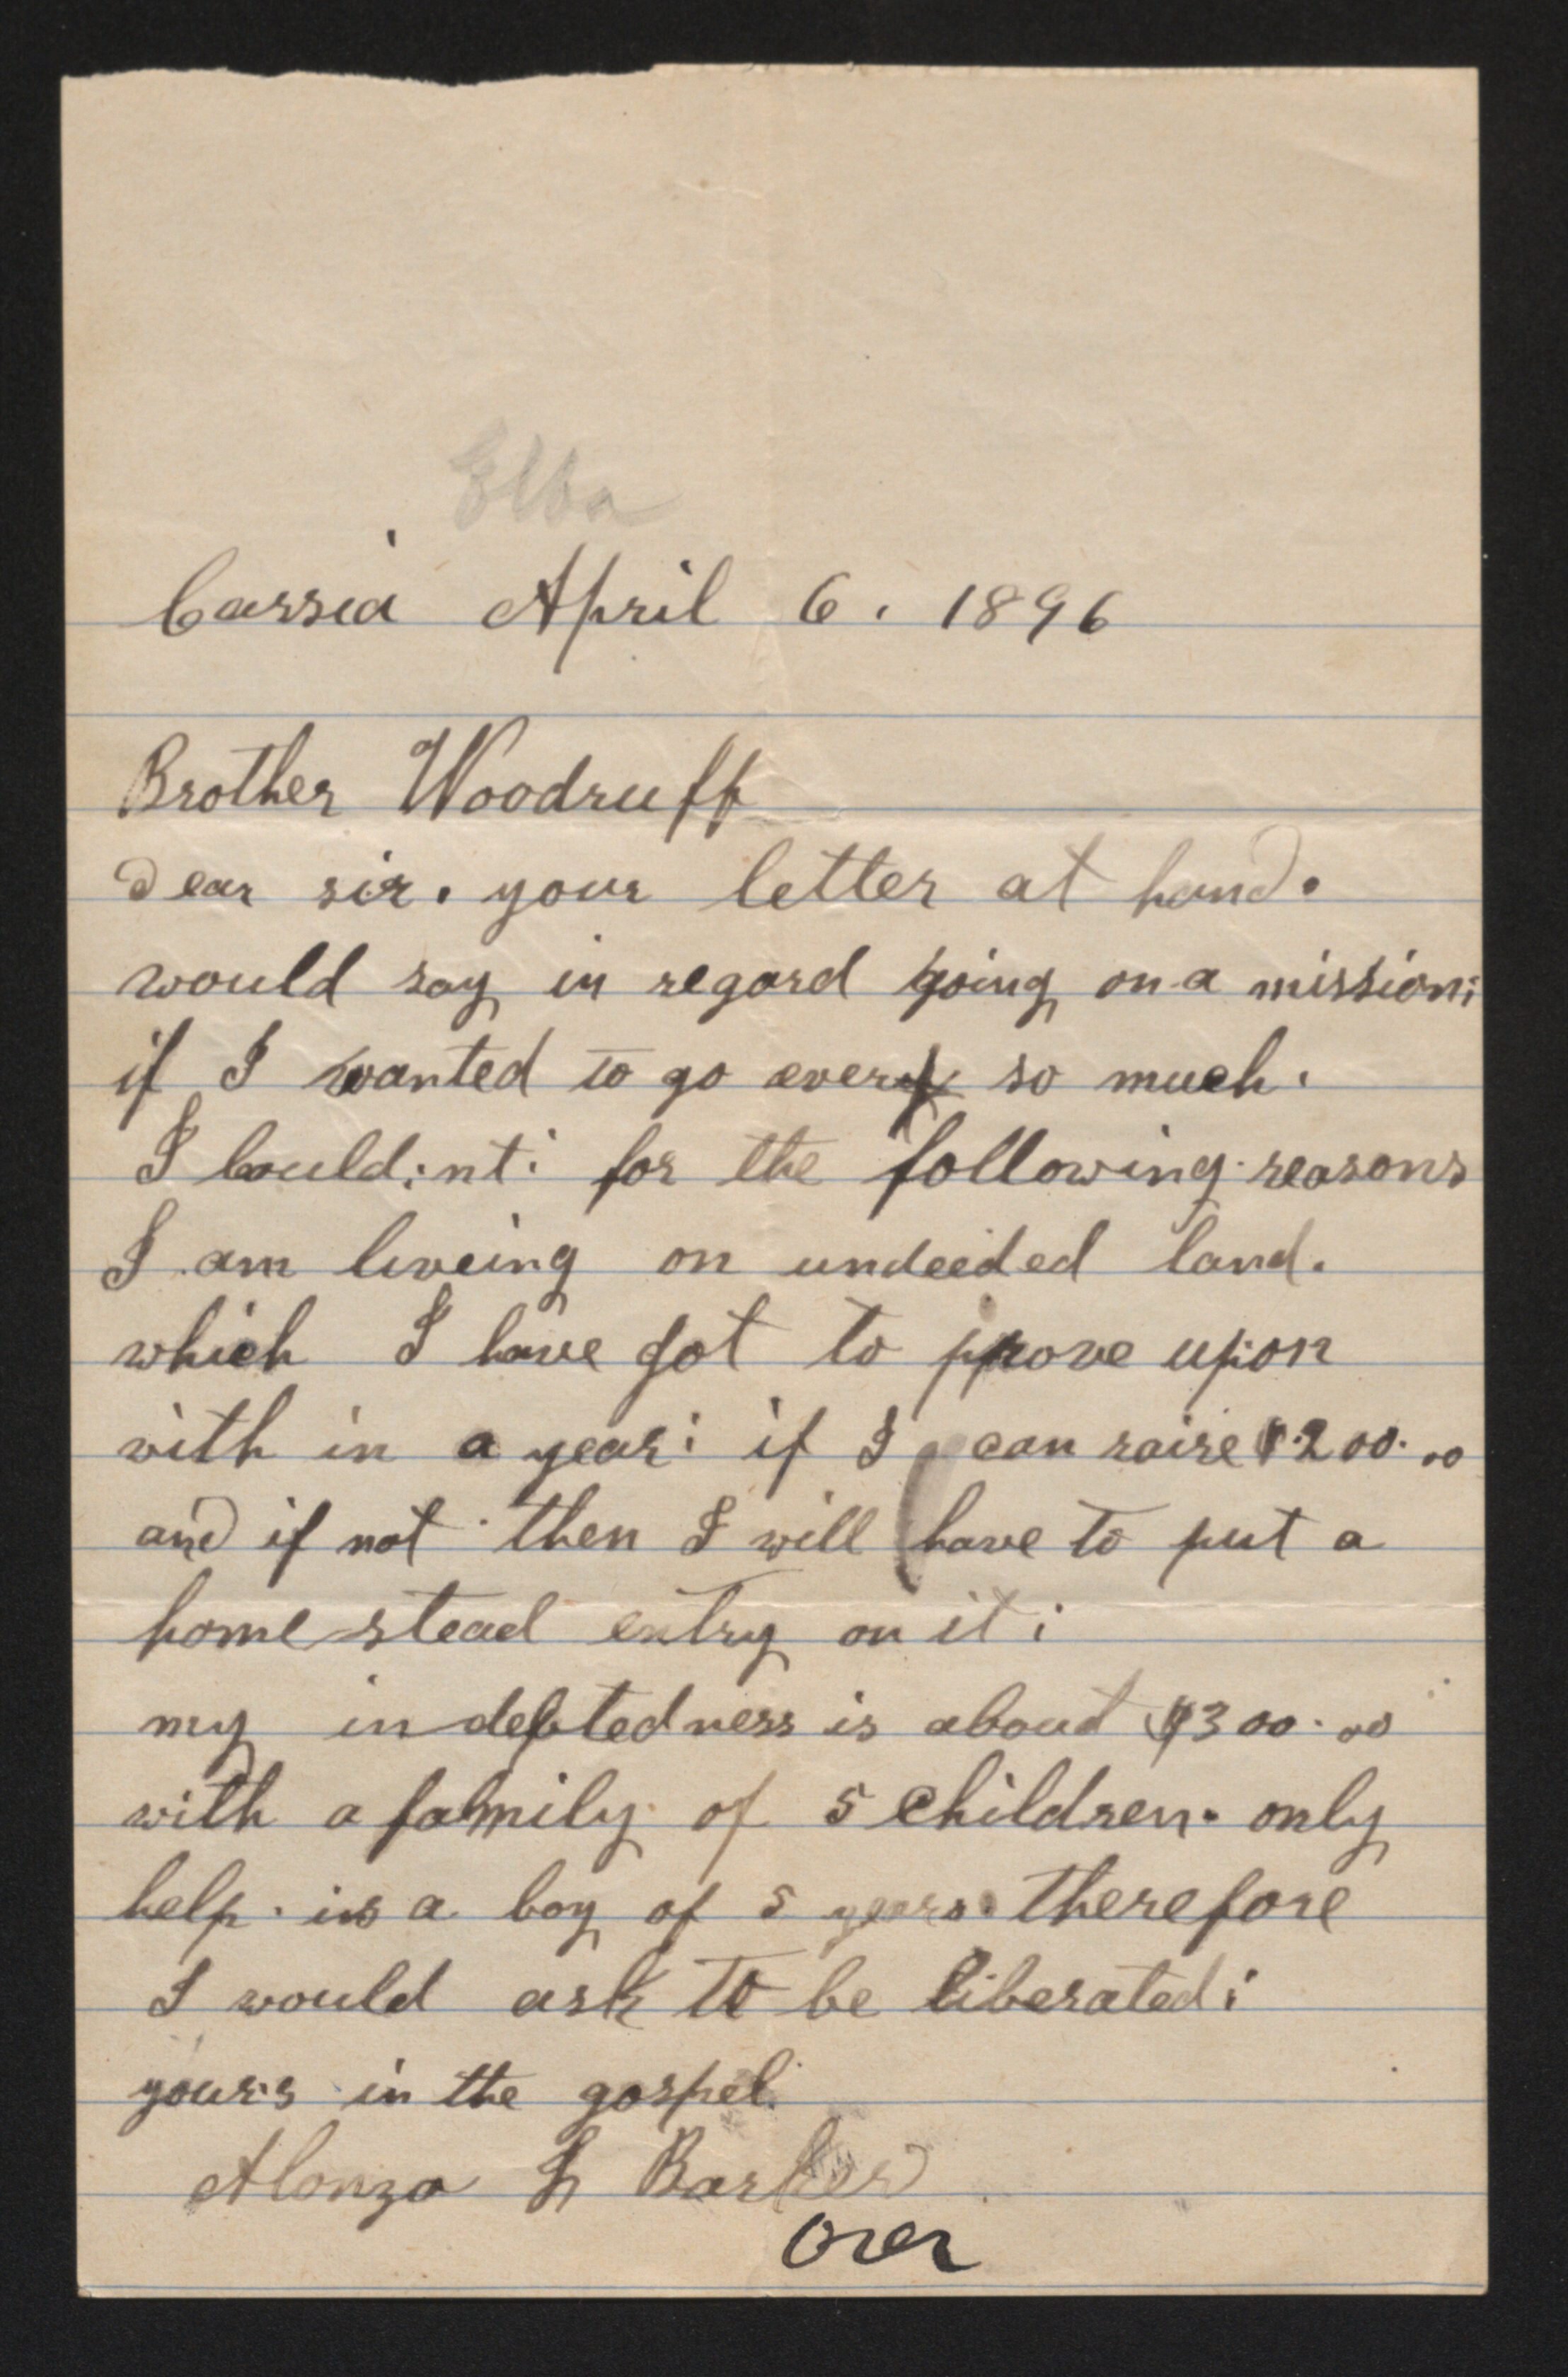 Elba
Cassia April 6. 1896
Brother Woodruff
dear sir. your letter at hand.
would say in regard going on a mission;
if I wanted to go ever so much.
I Could;nt; for the following reasons
I am liveing on undeeded land.
which I have got to prove upon
with in a year; if I can raise $200.00
and if not then I will have to put a
home stead entry on it;
my indebtedness is about $300.00
with a family of 5 children. only
help. is a boy of 5 years. therefore
I would ask to be liberated;
yours in the gospel.
Alonzo L Barker
over